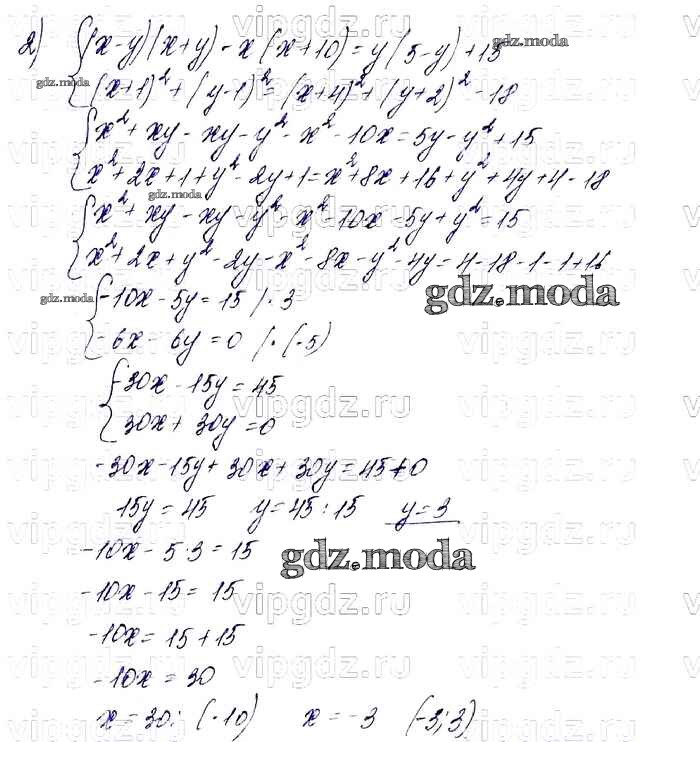 2) { (x-y)(x+y) - x(x+10) = y(5-y)+15
(x+1)² + (y-1)² = (x+4)² + (y+2)² - 18
{ x² + xy - xy - y² - x² - 10x = 5y - y² + 15
x² + 2x + 1 + y² - 2y + 1 = x² + 8x + 16 + y² + 4y + 4 - 18
{ x² + xy - xy - y² - x² - 10x - 5y + y² = 15
x² + 2x + y² - 2y - x² - 8x - y² - 4y = 4 - 18 - 1 - 1 + 16
{ -10x - 5y = 15 / · 3
-6x - 6y = 0 / · (-5)
{ -30x - 15y = 45
30x + 30y = 0
-30x - 15y + 30x + 30y = 45 + 0
15y = 45 y = 45 : 15 y = 3
-10x - 5·3 = 15
-10x - 15 = 15
-10x = 15 + 15
-10x = 30
x = 30 : (-10) x = -3 (-3; 3)
gdz.moda
vipgdz.ru